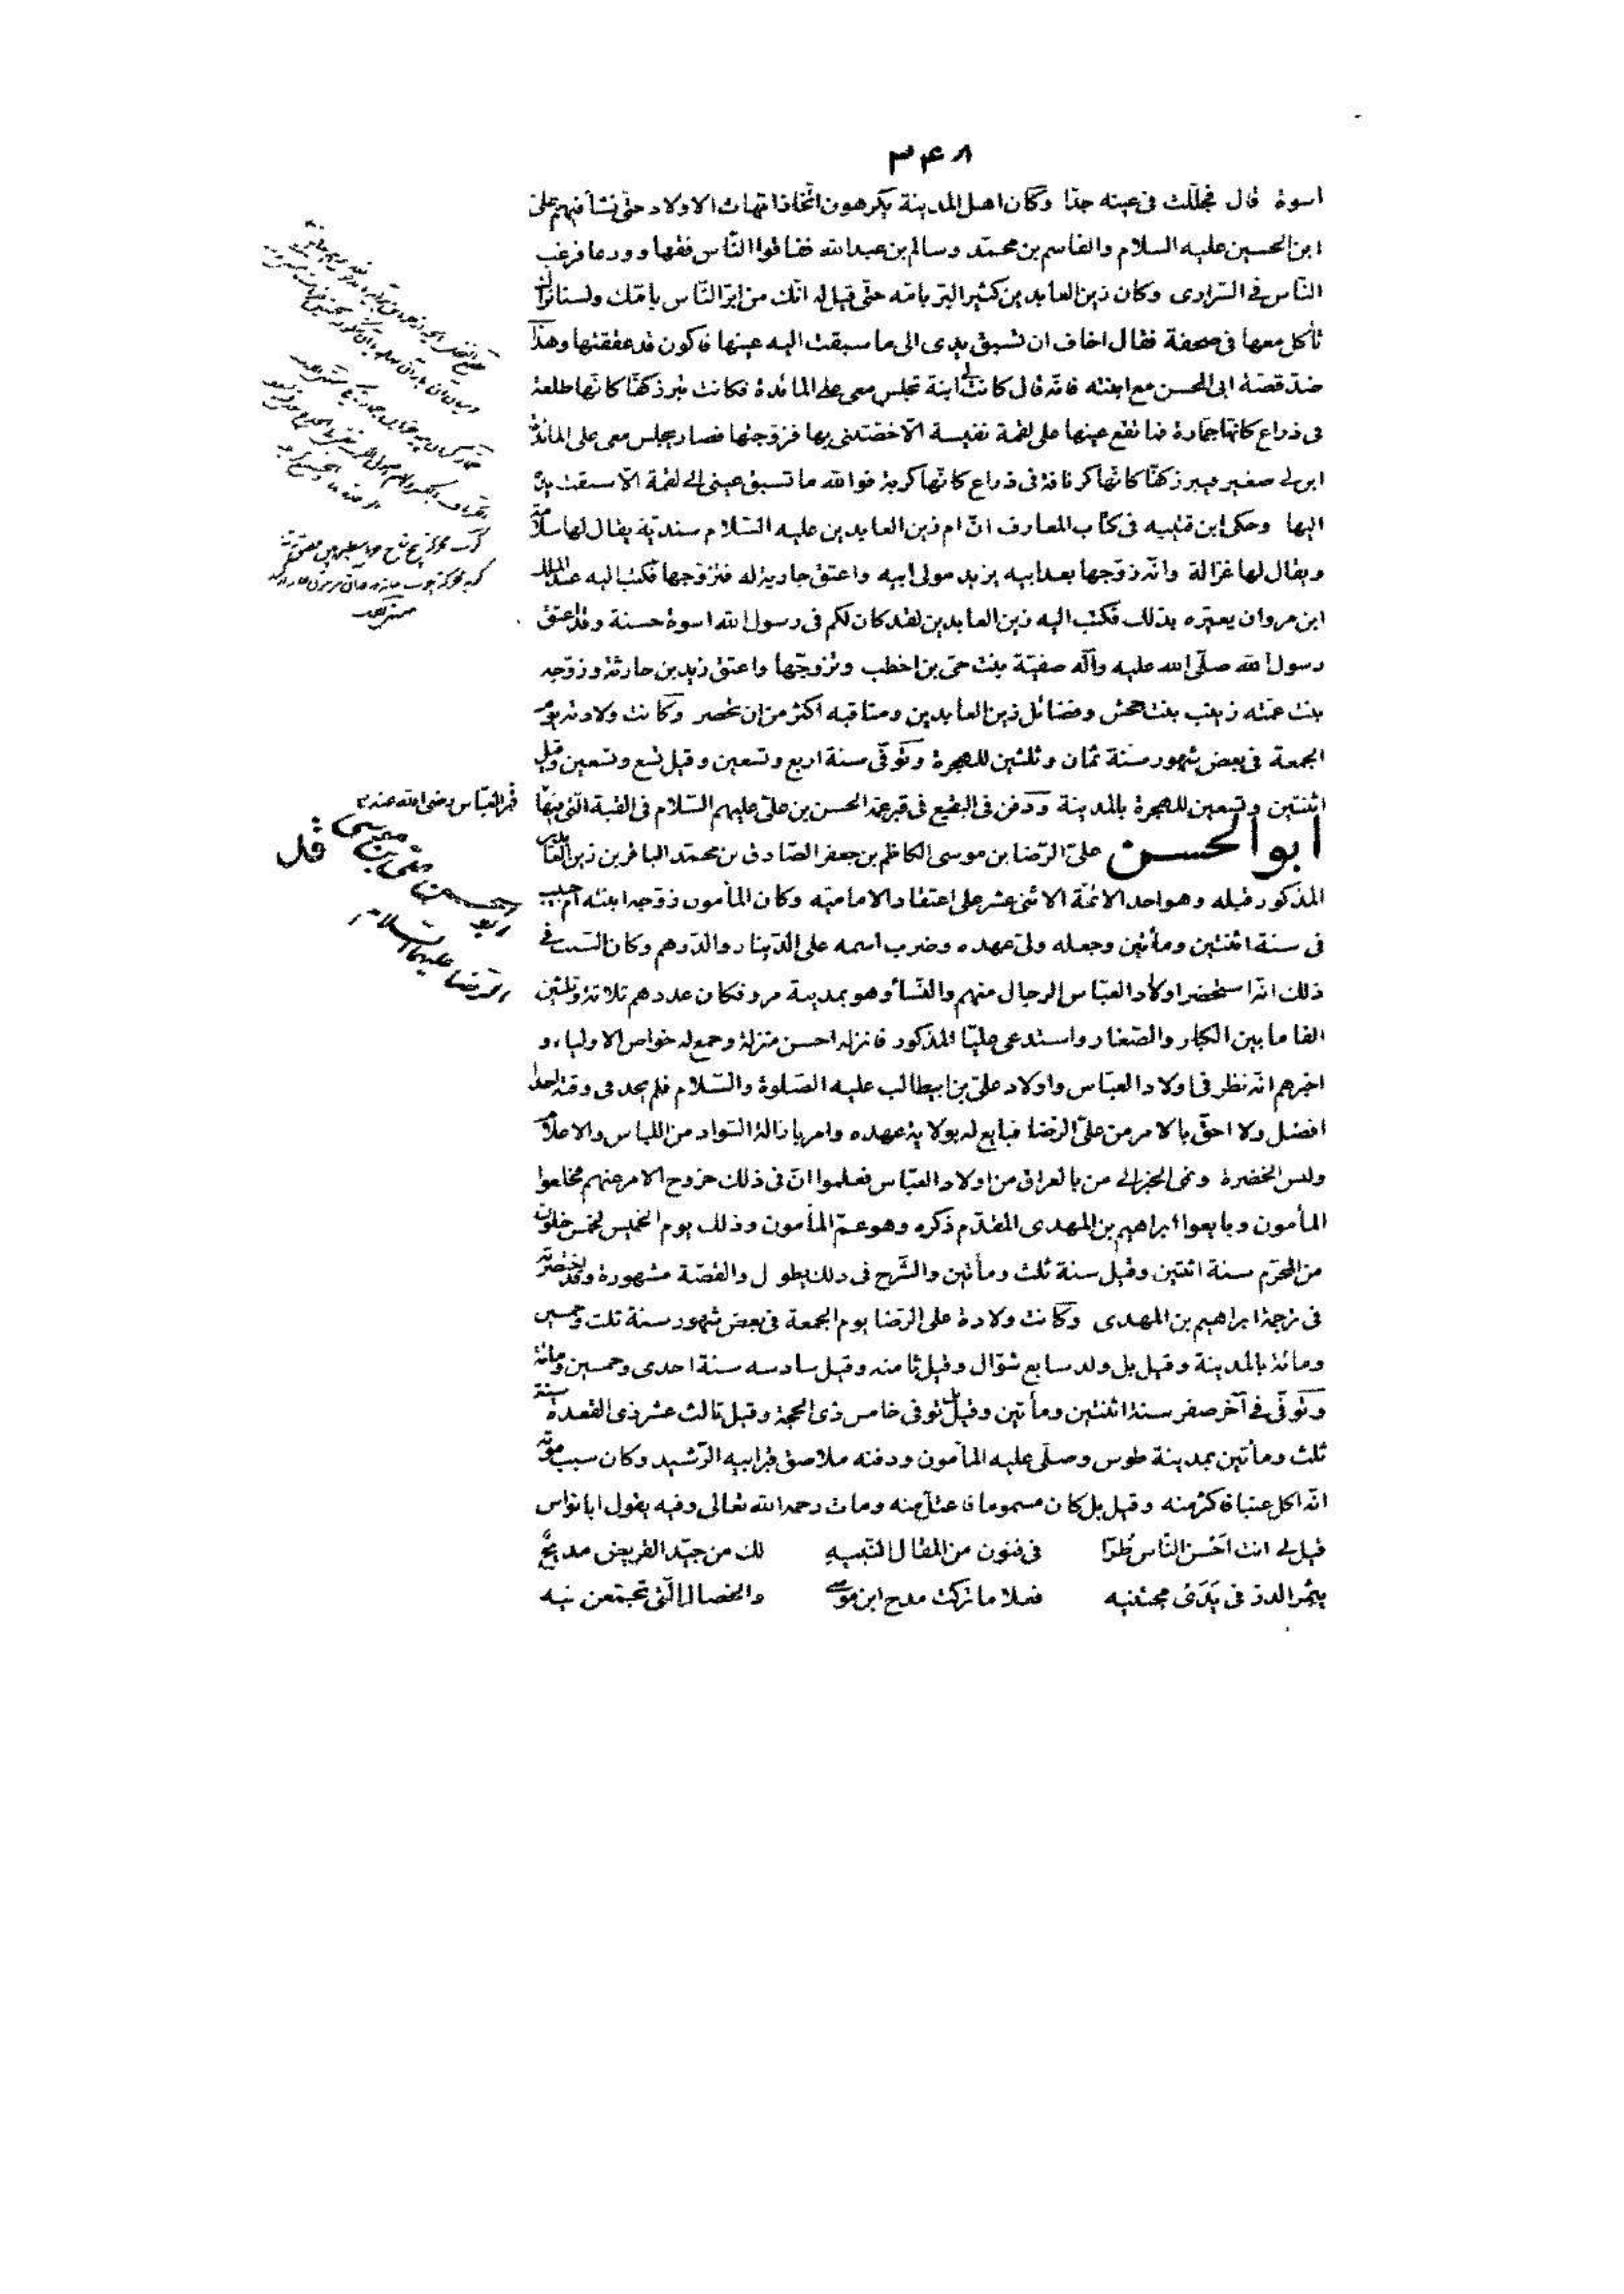 ٣٤٨
اسوة قال فجللت فى عينه جدّا وكان اهل المدينة يكرهون اتّخاذ امّهات الاولاد حتّى نشأ فيهم علىّ
ابن الحسين عليه السلام والقاسم بن محمّد وسالم بن عبدالله ففاقوا النّاس فقها وورعا فرغب
النّاس فى السّرارى وكان زين العابدين كثير البرّ بامّه حتّى قيل له انّك من ابرّ النّاس بامّك ولسنا نراك
تأكل معها فى صحفة فقال اخاف ان تسبق يدى الى ما سبقت اليه عينها فاكون قد عققتها وهذا
ضدّ قصّة ابى الحسن مع ابنته فانّه قال كانت لى ابنة تجلس معى على المائدة فكانت تبرز كفّا كانّها طلعة
فى ذراع كانّها جمّارة فما تقع عينها على لقمة نفيسة الّا خصّتنى بها فزوّجتها فصار يجلس معى على المائدة
ابن لى صغير فيبرز كفّا كانّها كرنافة فى ذراع كانّها كربة فوالله ما تسبق عينى الى لقمة الّا سبقت يده
اليها وحكى ابن قتيبه فى كتاب المعارف انّ ام زين العابدين عليه السّلام سنديّة يقال لها سلامة
ويقال لها غزالة وانّه زوّجها بعد ابيه بزيد مولى ابيه واعتق جارية له فتزوّجها فكتب اليه عبد الملك
ابن مروان يعيّره بذلك فكتب اليه زين العابدين لقد كان لكم فى رسول الله اسوة حسنة وقد اعتق
رسول الله صلّى الله عليه وآله صفيّة بنت حىّ بن اخطب وتزوّجها واعتق زيد بن حارثة وزوّجه
بنت عمّته زينب بنت جحش وفضائل زين العابدين ومناقبه اكثر من ان تحصر وكانت ولادته يوم
الجمعة فى بعض شهور سنة ثمان وثلثين للهجرة وتوفّى سنة اربع وتسعين وقيل تسع وتسعين وقيل
اثنتين وتسعين للهجرة بالمدينة ودفن فى البقيع فى قبر عمّه الحسن بن علىّ عليهم السّلام فى القبة الّتى فيها قبر العبّاس رضى الله عنه
ابو الحسن علىّ الرّضا بن موسى الكاظم بن جعفر الصّادق بن محمّد الباقر بن زين العابدين
المذكور قبله وهو احد الائمّة الاثنى عشر على اعتقاد الاماميّه وكان المأمون زوّجه ابنته ام حبيب
فى سنة اثنتين ومأتين وجعله ولىّ عهده وضرب اسمه على الدّينار والدّرهم وكان السّبب فى
ذلك انّه استحضر اولاد العبّاس الرجال منهم والنّساء وهو بمدينة مرو فكان عددهم ثلاثة وثلثين
الفا ما بين الكبار والصّغار واستدعى عليّا المذكور فانزله احسن منزلة وجمع له خواص الاولياء و
اخبرهم انّه نظر فى اولاد العبّاس واولاد علىّ بن ابيطالب عليه الصّلوة والسّلام فلم يجد فى وقته احدا
افضل ولا احقّ بالامر من علىّ الرّضا فبايع له بولاية عهده وامر بازالة السّواد من اللباس والاعلام
ولبس الخضرة ونمى الخبر الى من بالعراق من اولاد العبّاس فعلموا انّ فى ذلك خروج الامر عنهم فخلعوا
المأمون وبايعوا ابراهيم بن المهدى المقدّم ذكره وهو عمّ المأمون وذلك يوم الخميس لخمس خلون
من المحرّم سنة اثنتين وقيل سنة ثلث ومأتين والشّرح فى ذلك يطول والقصّة مشهورة وقد اختصرته
فى ترجمة ابراهيم بن المهدى وكانت ولادة على الرّضا يوم الجمعة فى بعض شهور سنة ثلث وخمسين
ومائة بالمدينة وقيل بل ولد سابع شوّال وقيل ثامنه وقيل سادسه سنة احدى وخمسين ومائة
وتوفّى فى آخر صفر سنة اثنتين ومأتين وقيل بل توفى خامس ذى الحجة وقيل ثالث عشر ذى القعدة سنة
ثلث ومأتين بمدينة طوس وصلّى عليه المأمون ودفنه ملاصق قبر ابيه الرّشيد وكان سبب موته
انّه اكل عنبا فاكثر منه وقيل بل كان مسموما فاعتلّ منه ومات رحمه الله تعالى وفيه يقول ابانواس
قيل لى انت احسن النّاس طُرّا فى فنون من المقال النّبيهِ لك من جيّد القريض مديحٌ
يثمر الدرّ فى يَدَىْ مجتنيه فعلا ما تركت مدح ابن موسى والخصال الّتى تجمّعن فيه